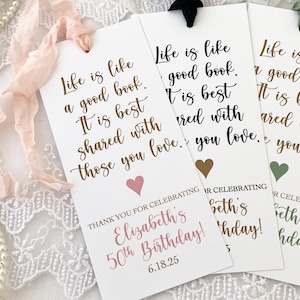 Life is like
a good book.
It is best
shared with
those you love.
THANK YOU FOR CELEBRATING
Elizabeth's
50th Birthday!
6.18.25
Life is like
good book.
It is best
ared with
you love.
FOR CELEBRATING
beth's
Birthday!
25
Life is
a good
It is
ared
e you
FOR